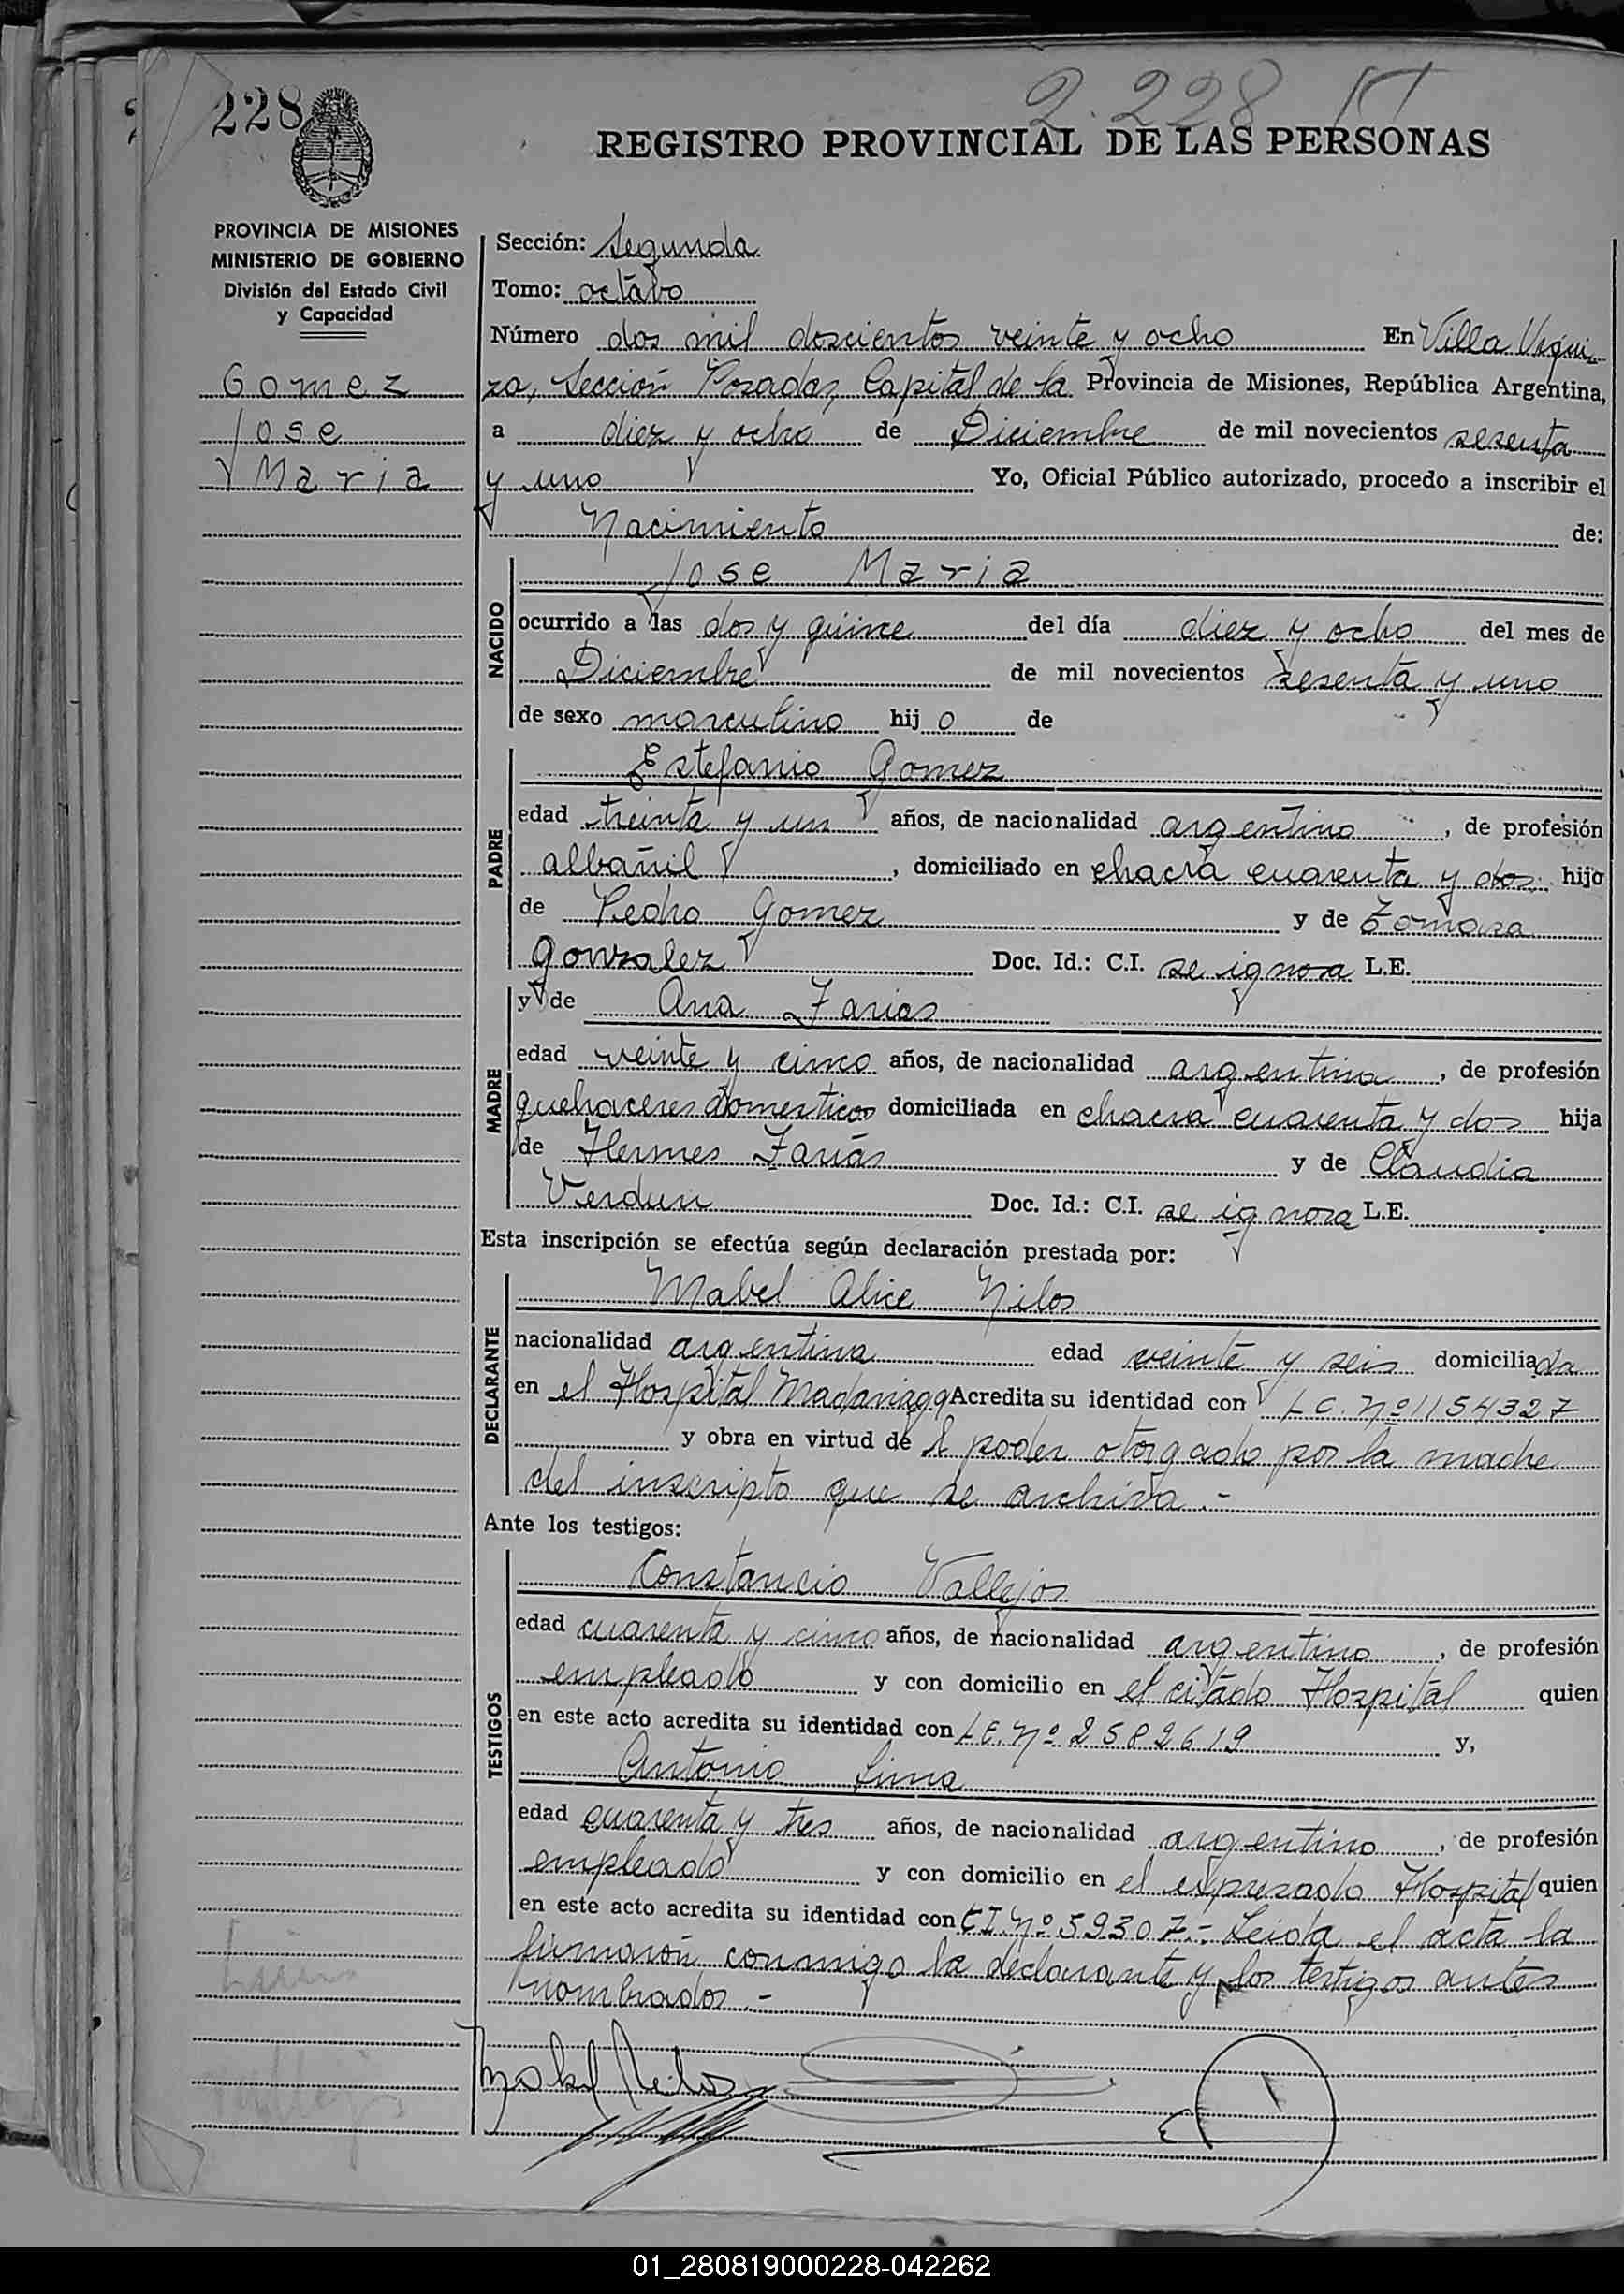 2.228
228
REGISTRO PROVINCIAL DE LAS PERSONAS
PROVINCIA DE MISIONES
MINISTERIO DE GOBIERNO
División del Estado Civil
y Capacidad
Gomez
Jose
Maria
Sección: Segunda
Tomo: octavo
Número dos mil doscientos veinte y ocho En Villa Urqui
za, Sección Posadas, Capital de la Provincia de Misiones, República Argentina,
a diez y ocho de Diciembre de mil novecientos sesenta
y uno Yo, Oficial Público autorizado, procedo a inscribir el
Nacimiento de:
NACIDO
Jose Maria
ocurrido a las dos y quince del día diez y ocho del mes de
Diciembre de mil novecientos sesenta y uno
de sexo masculino hijo de
PADRE
Estefanio Gomez
edad treinta y un años, de nacionalidad argentino, de profesión
albañil, domiciliado en chacra cuarenta y dos, hijo
de Pedro Gomez y de Tomasa
Gonzalez Doc. Id.: C.I. se ignora L.E.
MADRE
y de Ana Farias
edad veinte y cinco años, de nacionalidad argentina, de profesión
quehaceres domesticos domiciliada en chacra cuarenta y dos hija
de Hermes Farias y de Claudia
Verdun Doc. Id.: C.I. se ignora L.E.
Esta inscripción se efectúa según declaración prestada por:
DECLARANTE
Mabel Alice Nilos
nacionalidad argentina edad veinte y seis domiciliada
en el Hospital Madariaga Acredita su identidad con L.C. Nº 1154327
y obra en virtud de l poder otorgado por la madre
del inscripto que se archiva.-
Ante los testigos:
TESTIGOS
Constancio Vallejos
edad cuarenta y cinco años, de nacionalidad argentino, de profesión
empleado y con domicilio en el citado Hospital quien
en este acto acredita su identidad con L.E. Nº 2582619 y,
Antonio Lima
edad cuarenta y tres años, de nacionalidad argentino, de profesión
empleado y con domicilio en el expresado Hospital quien
en este acto acredita su identidad con C.I. Nº 59307.- Leida el acta la
firmaron conmigo la declarante y los testigos antes
nombrados.-
01_280819000228-042262